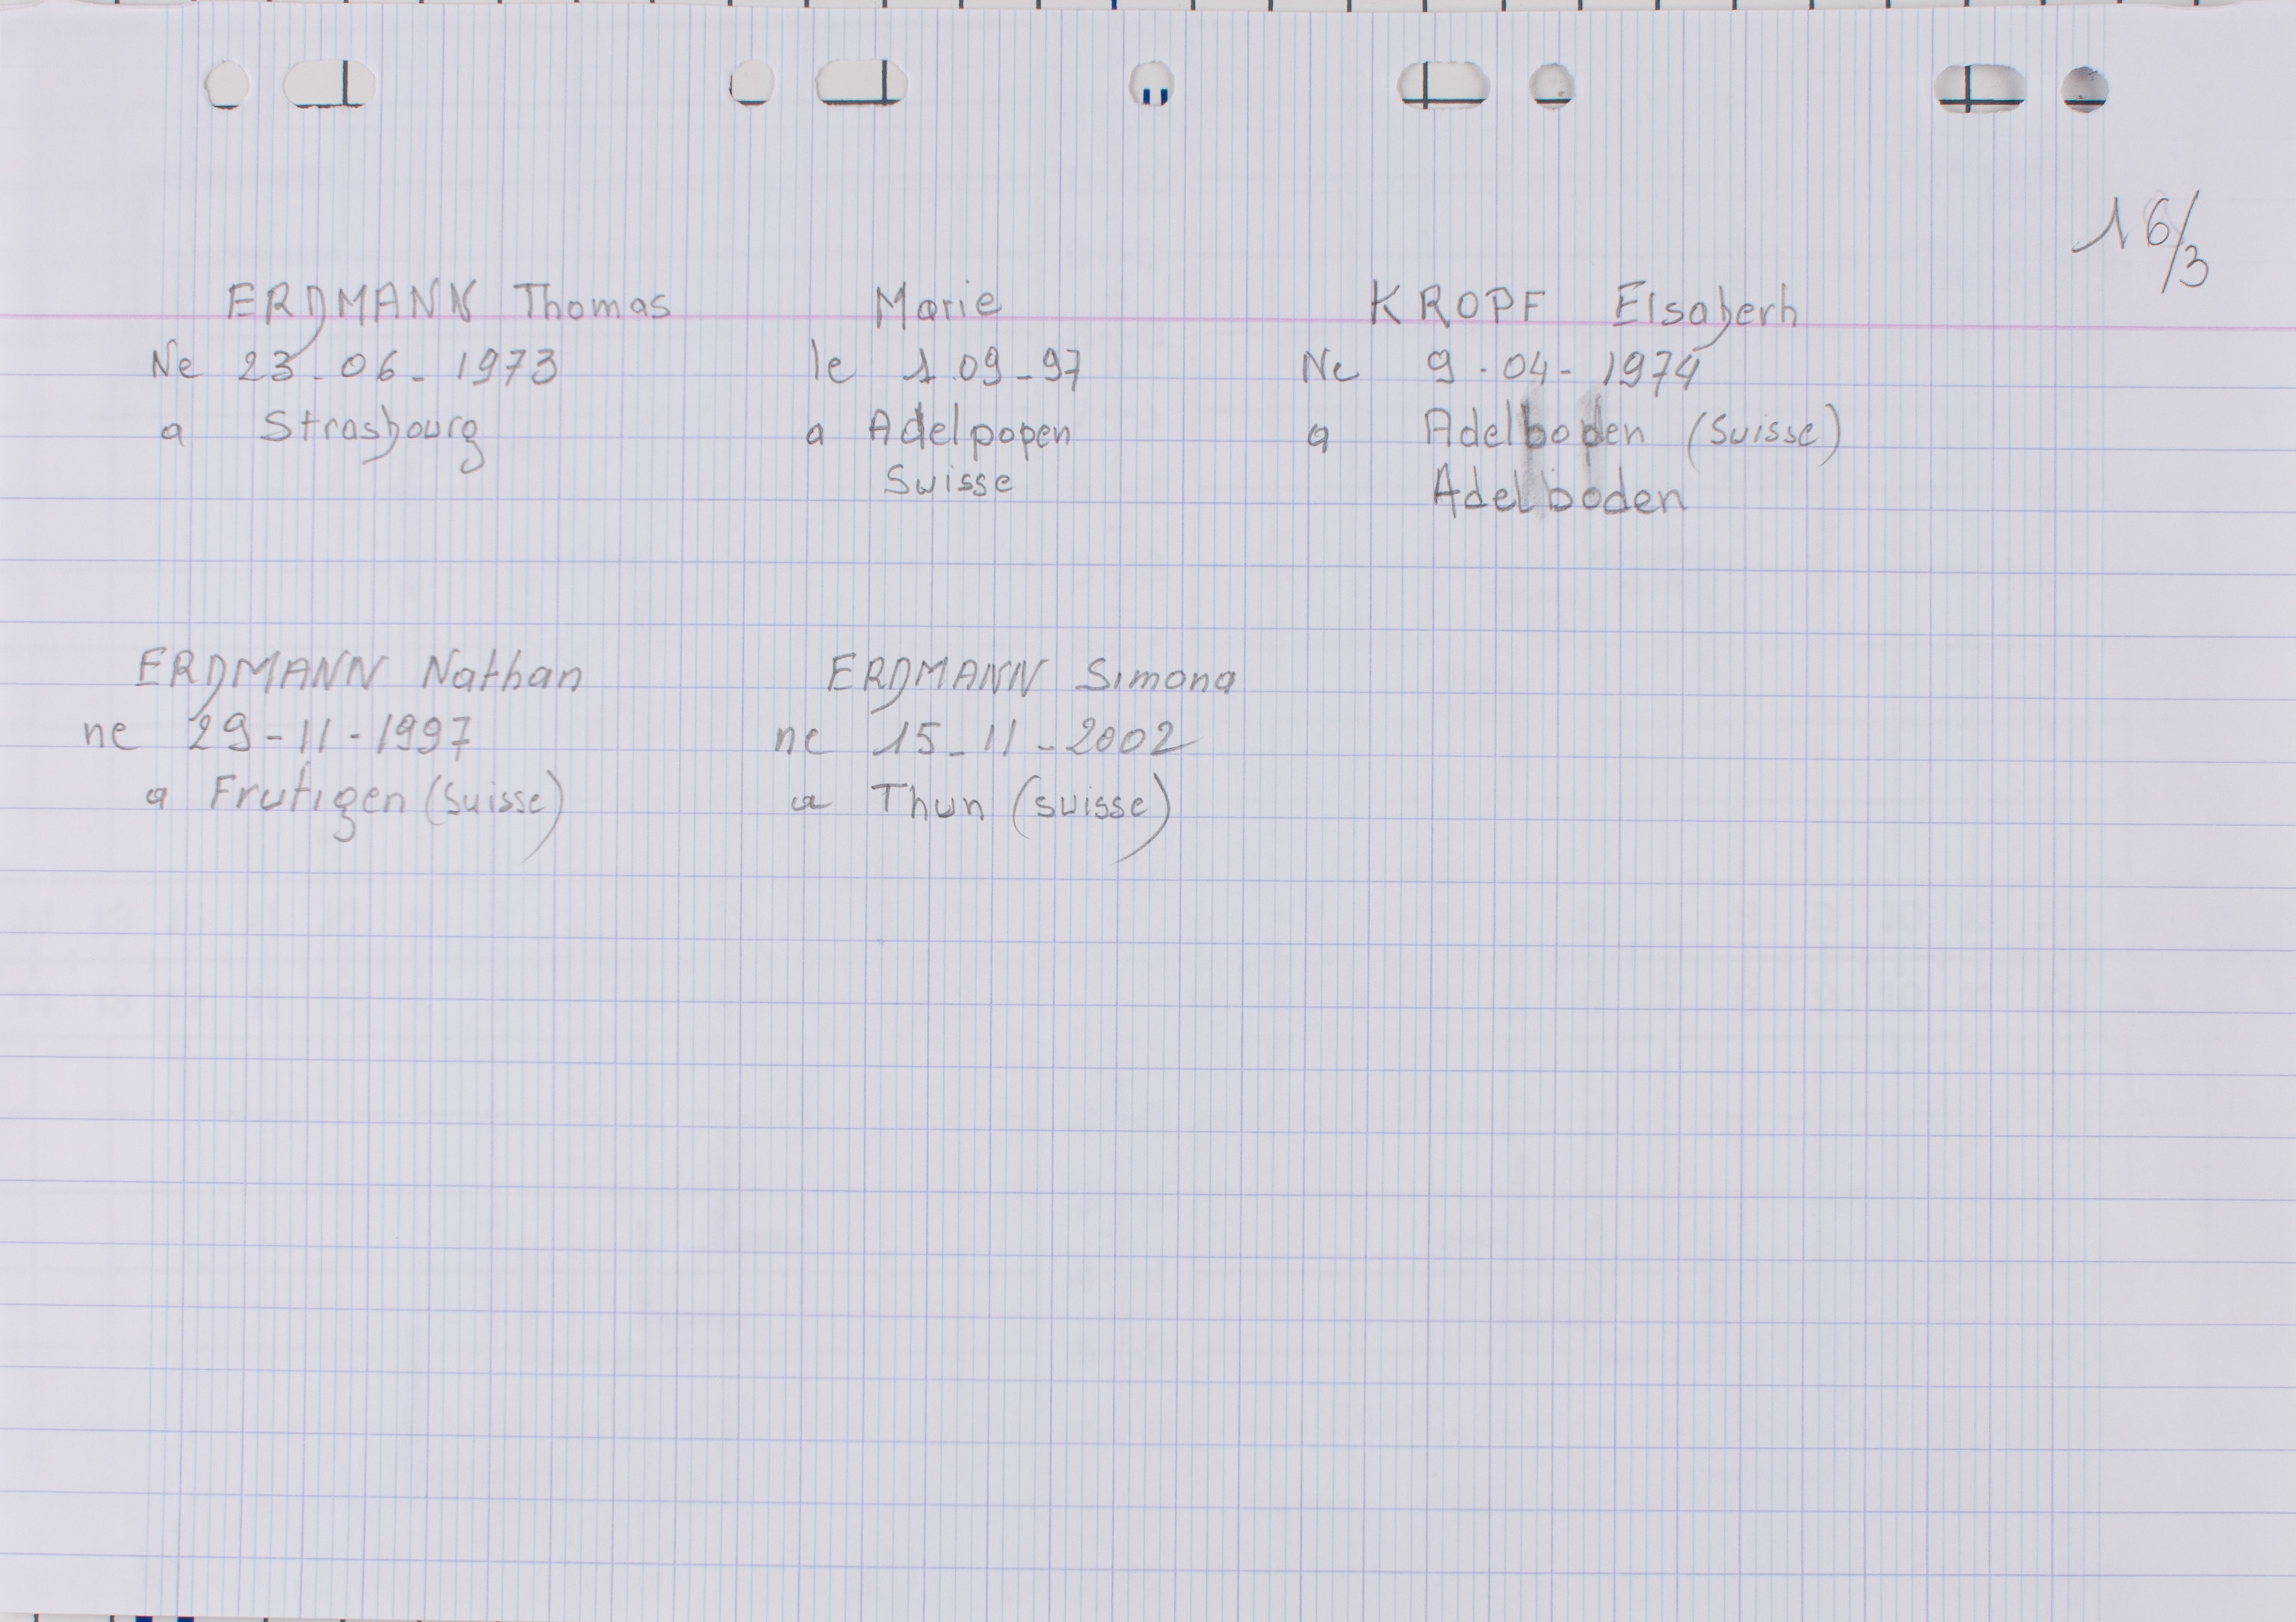 16/3
ERDMANN Thomas Marie KROPF Elsaberh
Ne 23-06-1973 le 1.09-97 Ne 9-04-1974
a Strasbourg a Adelpopen a Adelboden (Suisse)
Suisse Adelboden
ERDMANN Nathan ERDMANN Simona
ne 29-11-1997 ne 15-11-2002
a Frutigen (Suisse) a Thun (suisse)